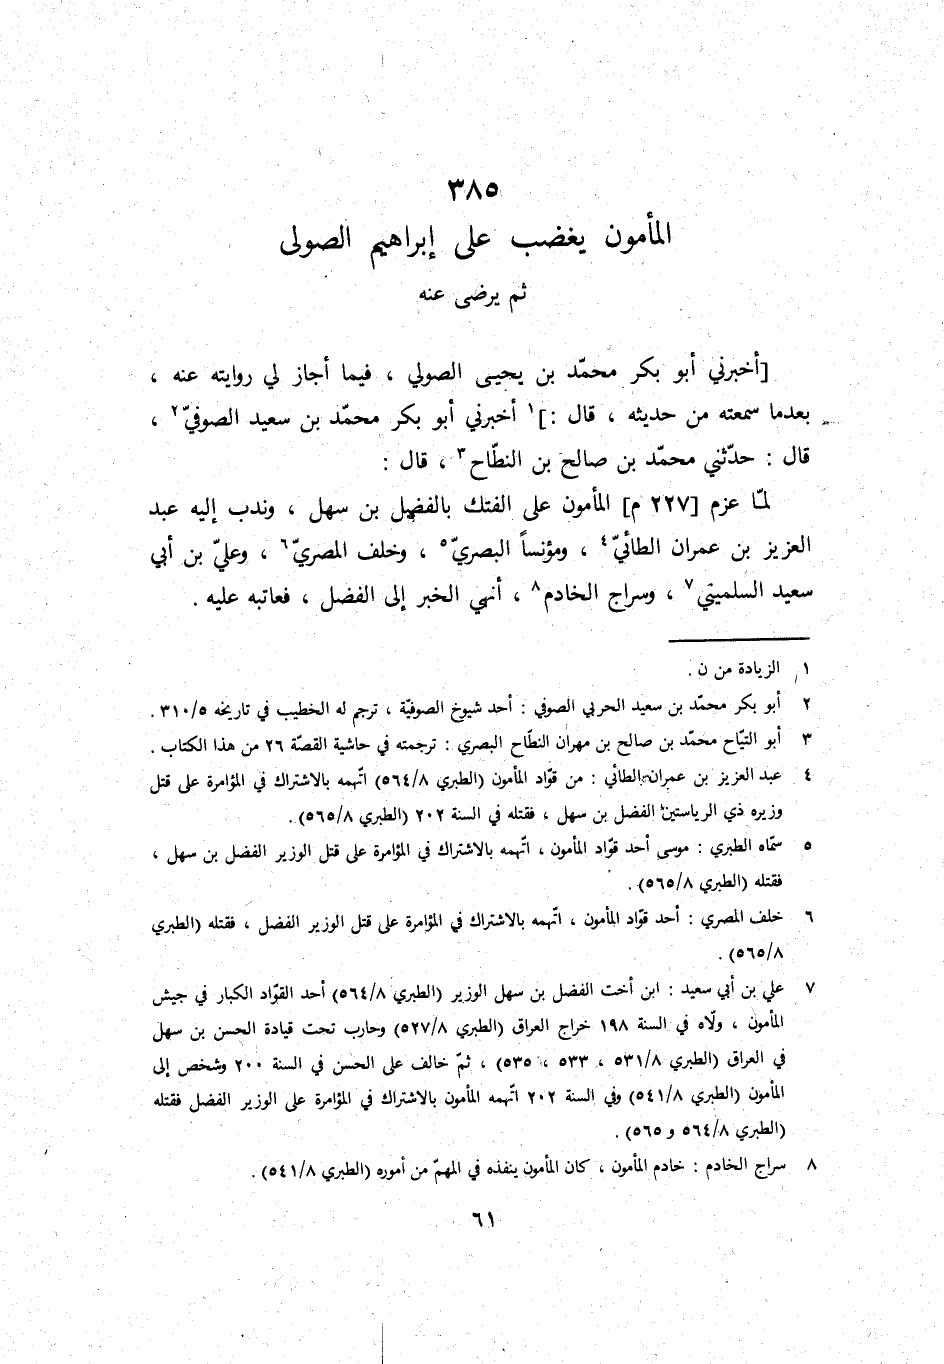 ٣٨٥
المأمون يغضب على إبراهيم الصولى
ثم يرضى عنه
[أخبرني أبو بكر محمّد بن يحيـى الصولي ، فيما أجاز لي روايته عنه ،
بعدما سمعته من حديثه ، قال :]١ أخبرني أبو بكر محمّد بن سعيد الصوفيّ٢ ،
قال : حدّثني محمّد بن صالح بن النطّاح٣ ، قال :
لمّا عزم [٢٢٧ م] المأمون على الفتك بالفضل بن سهل ، وندب إليه عبد
العزيز بن عمران الطائيّ٤ ، ومؤنساً البصريّ٥ ، وخلف المصريّ٦ ، وعليّ بن أبي
سعيد السلميتي٧ ، وسراج الخادم٨ ، أنهي الخبر إلى الفضل ، فعاتبه عليه .
١ الزيادة من ن .
٢ أبو بكر محمّد بن سعيد الحربي الصوفي : أحد شيوخ الصوفيّة ، ترجم له الخطيب في تاريخه ٣١٠/٥ .
٣ أبو التيّاح محمّد بن صالح بن مهران النطّاح البصري : ترجمته في حاشية القصّة ٢٦ من هذا الكتاب .
٤ عبد العزيز بن عمران الطائي : من قوّاد المأمون (الطبري ٥٦٤/٨) اتّهمه بالاشتراك في المؤامرة على قتل
وزيره ذي الرياستين الفضل بن سهل ، فقتله في السنة ٢٠٢ (الطبري ٥٦٥/٨) .
٥ سمّاه الطبري : موسى أحد قوّاد المأمون ، اتّهمه بالاشتراك في المؤامرة على قتل الوزير الفضل بن سهل ،
فقتله (الطبري ٥٦٥/٨) .
٦ خلف المصري : أحد قوّاد المأمون ، اتّهمه بالاشتراك في المؤامرة على قتل الوزير الفضل ، فقتله (الطبري
٥٦٥/٨) .
٧ علي بن أبي سعيد : ابن أخت الفضل بن سهل الوزير (الطبري ٥٦٤/٨) أحد القوّاد الكبار في جيش
المأمون ، ولّاه في السنة ١٩٨ خراج العراق (الطبري ٥٢٧/٨) وحارب تحت قيادة الحسن بن سهل
في العراق (الطبري ٥٣١/٨ ، ٥٣٣ ، ٥٣٥) ، ثمّ خالف على الحسن في السنة ٢٠٠ وشخص إلى
المأمون (الطبري ٥٤١/٨) وفي السنة ٢٠٢ اتّهمه المأمون بالاشتراك في المؤامرة على الوزير الفضل فقتله
(الطبري ٥٦٤/٨ و ٥٦٥) .
٨ سراج الخادم : خادم المأمون ، كان المأمون ينفذه في المهمّ من أموره (الطبري ٥٤١/٨) .
٦١